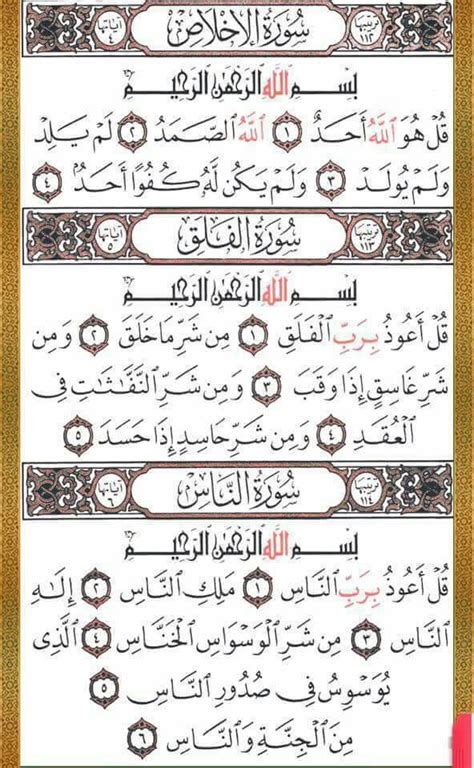 ترتيبها ١١٢ سُورَةُ الإِخْلَاصِ آياتها ٤
بِسْمِ اللَّهِ الرَّحْمَنِ الرَّحِيمِ
قُلْ هُوَ اللَّهُ أَحَدٌ ١ اللَّهُ الصَّمَدُ ٢ لَمْ يَلِدْ
وَلَمْ يُولَدْ ٣ وَلَمْ يَكُن لَّهُ كُفُوًا أَحَدٌ ٤
ترتيبها ١١٣ سُورَةُ الْفَلَقِ آياتها ٥
بِسْمِ اللَّهِ الرَّحْمَنِ الرَّحِيمِ
قُلْ أَعُوذُ بِرَبِّ الْفَلَقِ ١ مِن شَرِّ مَا خَلَقَ ٢ وَمِن
شَرِّ غَاسِقٍ إِذَا وَقَبَ ٣ وَمِن شَرِّ النَّفَّٰثَٰتِ فِي
الْعُقَدِ ٤ وَمِن شَرِّ حَاسِدٍ إِذَا حَسَدَ ٥
ترتيبها ١١٤ سُورَةُ النَّاسِ آياتها ٦
بِسْمِ اللَّهِ الرَّحْمَنِ الرَّحِيمِ
قُلْ أَعُوذُ بِرَبِّ النَّاسِ ١ مَلِكِ النَّاسِ ٢ إِلَٰهِ
النَّاسِ ٣ مِن شَرِّ الْوَسْوَاسِ الْخَنَّاسِ ٤ الَّذِي
يُوَسْوِسُ فِي صُدُورِ النَّاسِ ٥
مِنَ الْجِنَّةِ وَالنَّاسِ ٦